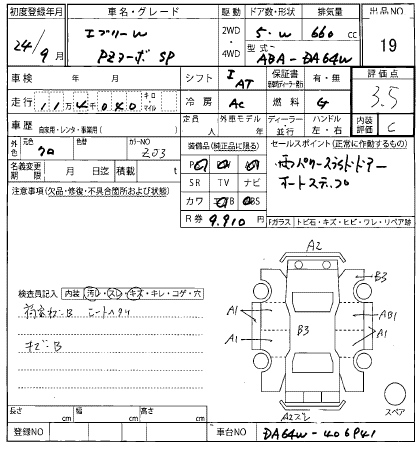 初度登録年月 車名・グレード 駆動 ドア数・形状 排気量 出品NO
24/9月 エブリーW PZターボ SP 2WD・4WD 5・W 660cc 19
型式 ABA-DA64W
車検 年 月 シフト I AT 保証書 有・無 評価点
走行 11万4千040 キロ・マイル 冷房 AC 燃料 G 3.5
車歴 自家用・レンタ・事業用( ) 定員 人 外車モデル 年 ディーラー 並行 ハンドル 左・右 内装評価 C
外色 元色 クロ 色替 カラーNO Z03 装備品(純正品に限る) セールスポイント(正常に動作するもの)
名義変更期限 月 日迄 積載 t 両パワースライドドアー
注意事項(欠品・修復・不具合箇所および状態) SR TV ナビ オートステップ
カワ
R券 9.910円
Fガラス トビ石・キズ・ヒビ・ワレ・リペア跡
A2
検査員記入 内装 汚レ・スレ・キズ・キレ・コゲ・穴
B3
A1 AB1
B3
A1 A1
キズ:B
A2ズレ
スペア
長さ cm 幅 cm 高さ cm
登録NO 車台NO DA64W-406941